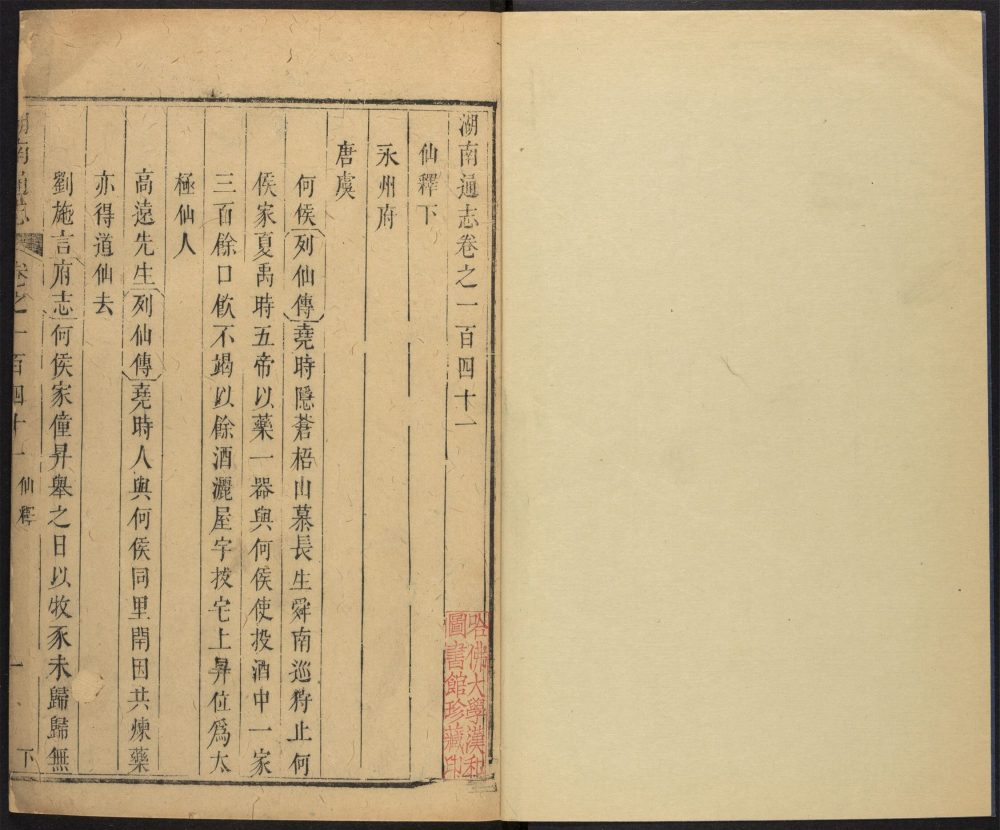 湖南通志卷之一百四十一
仙釋下
永州府
唐虞
何侯列仙傳堯時隱蒼梧山慕長生舜南巡狩止何
侯家夏禹時五帝以藥一器與何侯使投酒中一家
三百餘口飲不竭以餘酒灑屋宇拔宅上昇位爲太
極仙人
高遠先生列仙傳堯時人與何侯同里閈因共煉藥
亦得道仙去
劉施言府志何侯家僮昇舉之日以牧豕未歸歸無
湖南通志 卷之一百四十一 仙釋 一 下
哈佛大學漢和
圖書館珍藏印